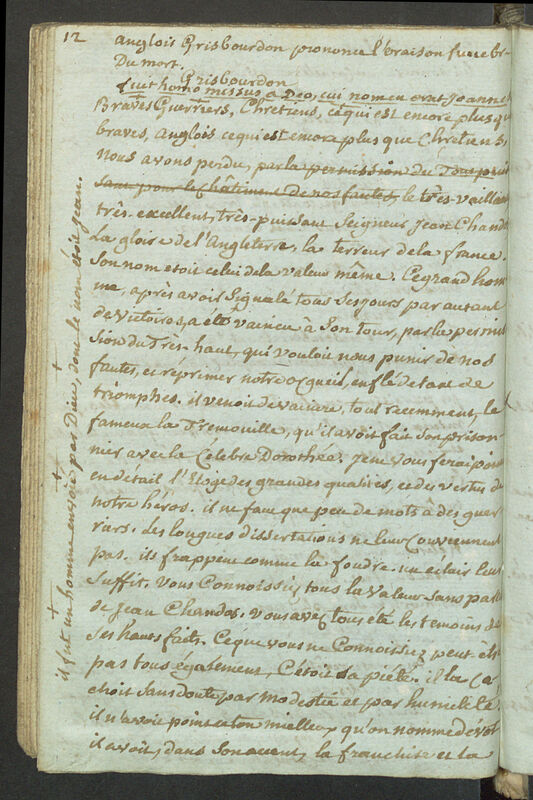 12
anglois Grisbourdon prononce l'oraison funebr-
Du mort.
Grisbourdon
fuit homo missus a Deo, cui nomen erat Joannes
Braves Guerriers, Chretiens, ce qui est encore plus que
braves, anglois ce qui est encore plus que Chretiens,
nous avons perdu, par la permission du Tout puis
sant pour le châtiment de nos fautes, le très-vaillan
très-excellent, très-puissant Seigneur Jean Chando
La gloire de l'Angleterre, la terreur de la france.
Son nom etoit celui de la valeur même. Ce grand hom
me, après avoir Signalé tous ses jours par autant
de Victoires, a été vaincu à Son tour, par la permis
sion du Très-haut, qui vouloit nous punir de nos
fautes, et réprimer notre orgueil, enflé de tant de
triomphes. il venoit de vaincre, tout recemment, le
fameux la Tremouille, qu'il avoit fait Son prison
nier avec la Célebre Dorothea. Je ne vous ferai point
en détail l'Eloge des grandes qualités, et des vertus de
notre héros. il ne faut que peu de mots à des guer
riers. Les longues dissertations ne leur Conviennent
pas. ils frappent comme la foudre. un eclair leur
Suffit. Vous Connoissés tous la valeur sans pare
de Jean Chandos. vous avés tous été les temoins de
Ses hauts faits. Ce que vous ne Connoissiez peut-êt
pas tous egalement, C'étoit sa piété. il la ca
choit sans doute par modestie et par humilité
il n'avoit point ce ton mielleux qu'on nomme dévot
il avoit, dans Son accent, la franchise et la
+ il fut un homme envoié + par Dieu, dont le nom étoit Jean. +